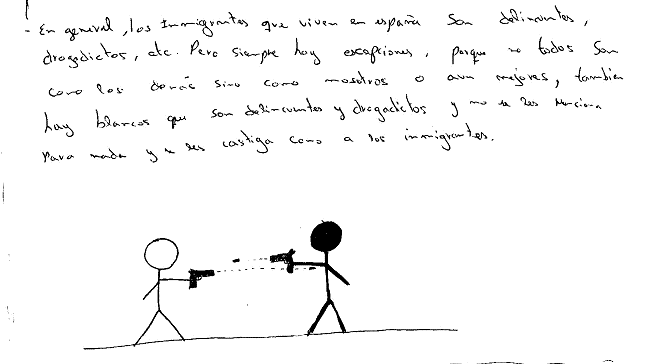 - En general, los Inmigrantes que viven en españa son delincuentes,
drogadictos, etc. Pero siempre hay escaptiones, porque no todos son
como los demás sino como nosotros o aun mejores, tambien
hay blancos que son delincuentes y drogadictos y no se les menciona
para nada y se les castiga como a los inmigrantes.